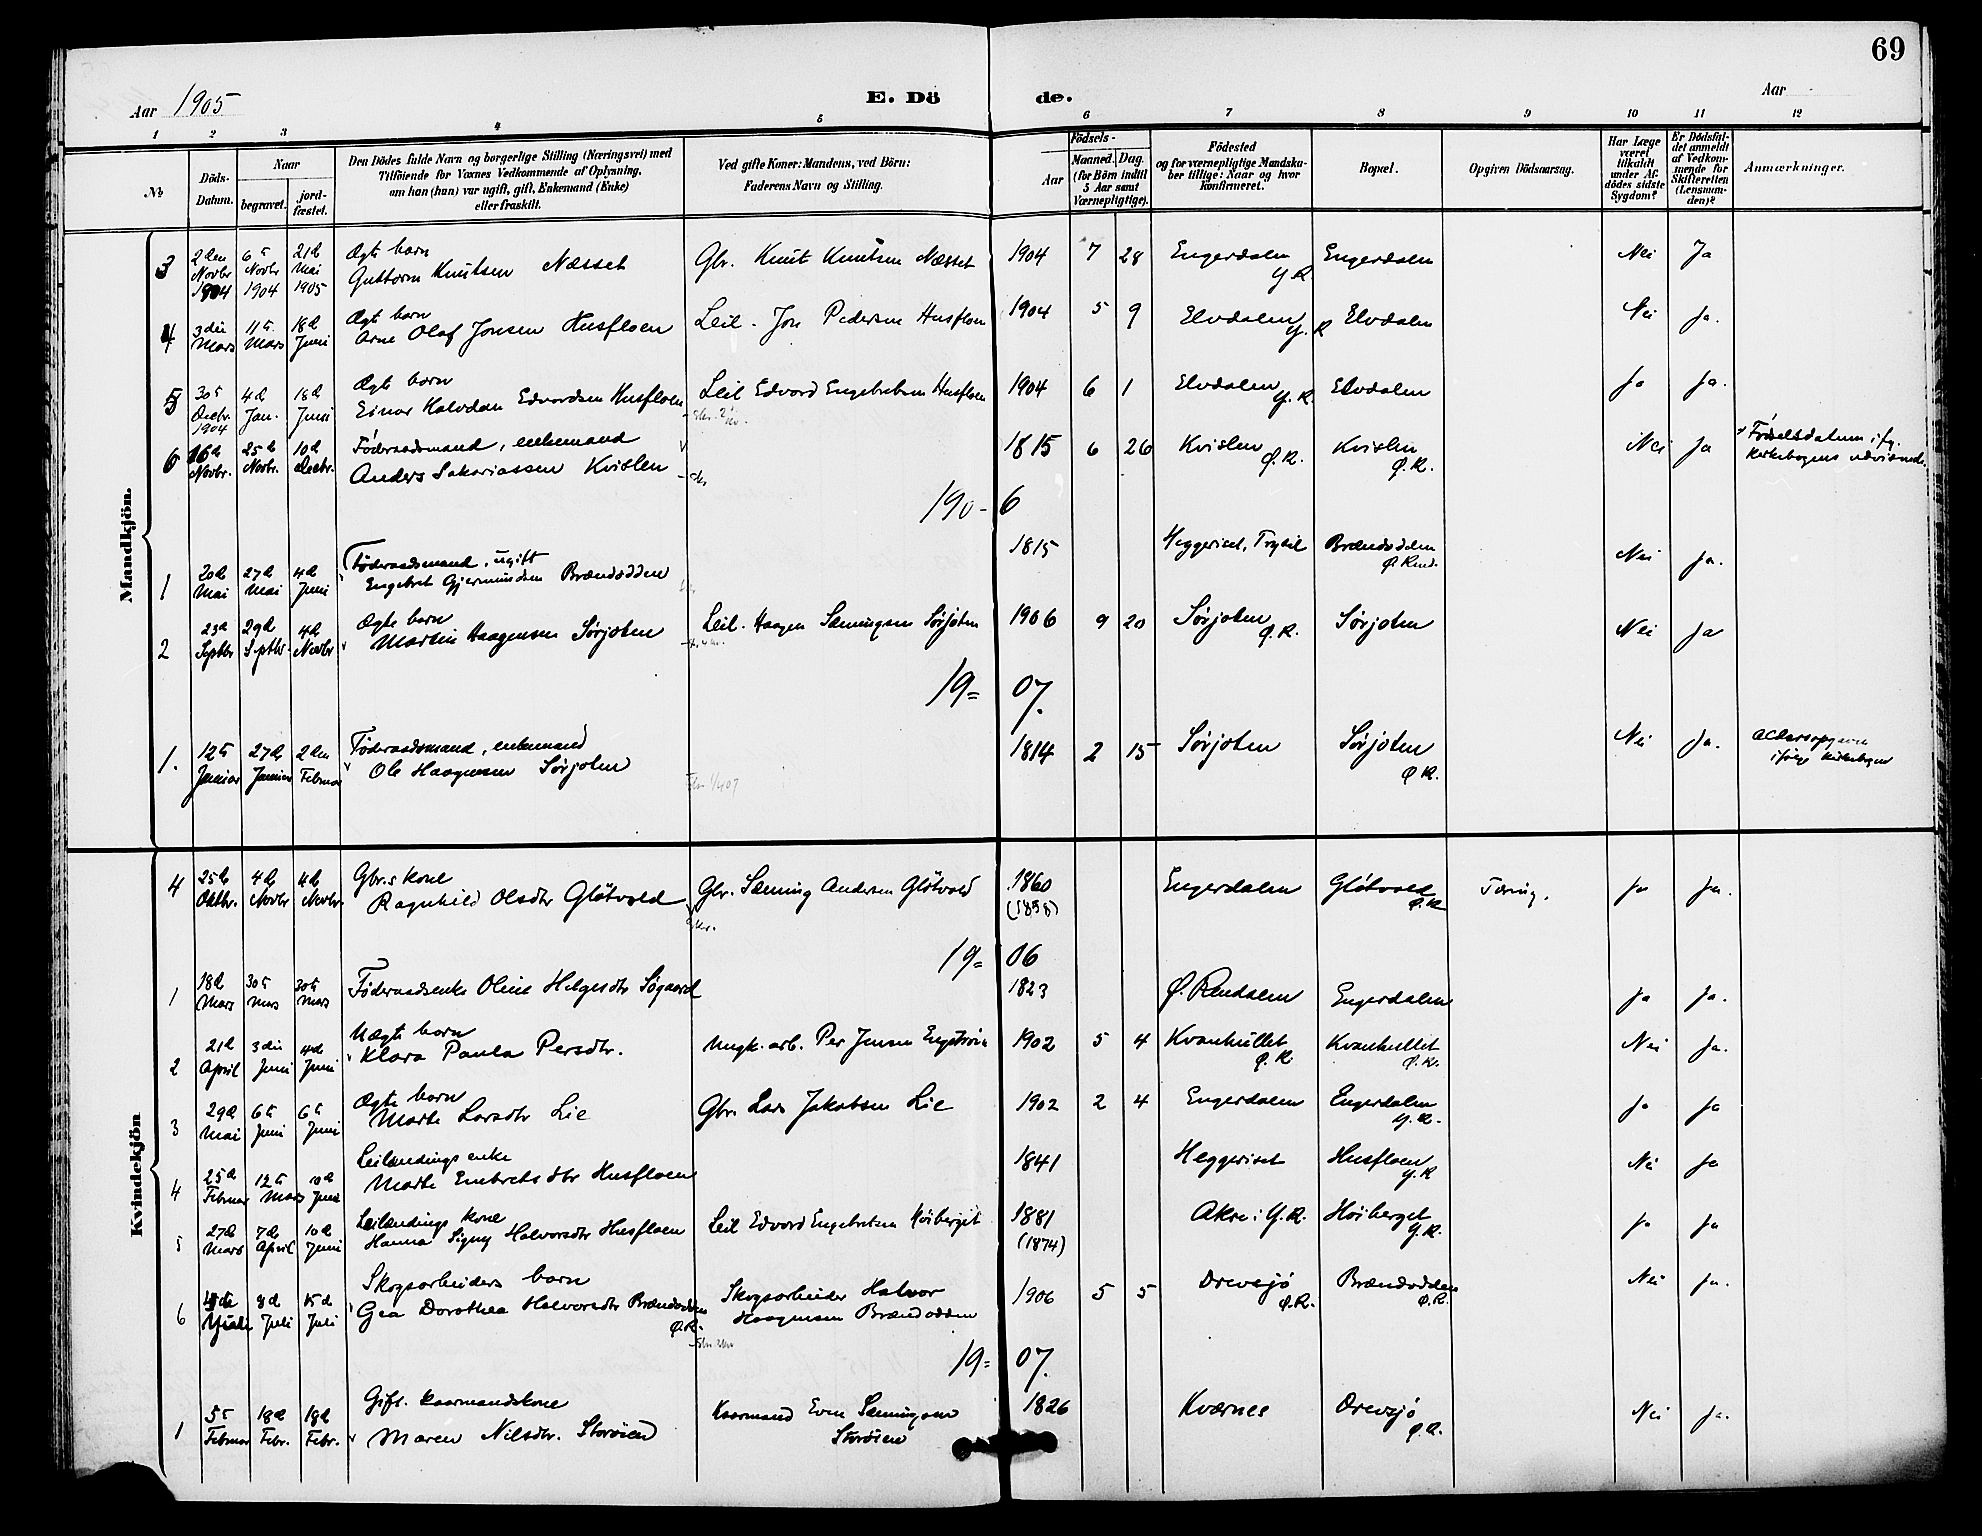 69
Aar 1905
E. Dö de.
Aar
1 2 3 4 5 6 7 8 9 10 11 12
No
Döds-Datum.
Naar
begravet.
jord-fæstet.
Den Dödes fulde Navn og borgerlige Stilling (Næringsvei) med
Tilföiende for Voxnes Vedkommende af Oplysning,
om han (hun) var ugift, gift, Enkemand (Enke)
eller fraskilt.
Ved gifte Koner: Mandens, ved Börn:
Faderens Navn og Stilling.
Födsels-
Aar
Maaned. Dag.
(for Börn indtil
5 Aar samt
Værnepligtige).
Födested
og for værnepligtige Mandska-
ber tillige: Naar og hvor
konfirmeret.
Bopæl.
Opgiven Dödsaarsag.
Har Læge
været
tilkaldt
under Af-
dödes sidste
Sygdom?
Er Dödsfal-
det anmeldt
af Vedkom-
mende for
Skifteretten
(Lensman-
den)?
Anmærkninger.
Mandkjön.
3 2den Novbr 1904 6te Novbr 1904 21de Mai 1905 Ægte barn
Guttorm Knutsen Næsset Gbr. Knut Knutsen Næsset 1904 7 28 Engerdalen Y. R. Engerdalen Nei Ja
4 3die Mars 11te Mars 18de Juni Ægte barn
Arne Olaf Jonsen Husfloen Leil. Jon Pedersen Husfloen 1904 5 9 Elvdalen Y. R Elvdalen Nei Ja.
5 30te Decbr. 1904 4de Jan. 18de Juni Ægte barn
Einar Halvdan Edvardsen Husfloen Leil Edvard Engebretsen Husfloen 1904 6 1 Elvdalen Y. R. Elvdalen Ja Ja.
6 16de Novbr. 25de Novbr. 10de Decbr. Føderaadsmand, enkemand
Anders Sakariassen Kvislen 1815 6 26 Kvislen Ø. R. Kvislen Ø. R. Nei Ja Fødselsdatum ifg.
kirkebogens udvisende.
190- 6
1 20de Mai 27de Mai 4de Juni Føderaadsmand, ugift
Engebret Gjermundsen Brændodden 1815 Heggeriset, Trysil Brændodden Ø. Rend. Nei Ja.
2 23de Septbr 29de Septbr. 4de Novbr Ægte barn
Martin Haagensen Sørjoten Leil. Haagen Sæmingsen Sørjoten 1906 9 20 Sørjoten Ø. R. Sørjoten Nei Ja
19= 07.
1. 12te Januar 27de Januar 2den Februar Føderaadsmand, enkemand
Ole Haagensen Sørjoten 1814 2 15 Sørjoten Sørjoten Ø R. Nei Ja. Aldersopgaven
ifølge kirkebogen
Kvindekjön
4 25de Oktbr. 4de Novbr 4de Novbr. Gbr.s kone
Ragnhild Olsdtr Gløtvold Gbr. Sæming Andersen Gløtvold 1860
(1858) Engerdalen Gløtvold Ø. R Tæring. Ja Ja.
19= 06
1 18de Mars 30te Mars 30te Mars Føderaadsenke Oline Helgesdtr Søgaard 1823 Ø. Rendalen Engerdalen Ja Ja.
2 21de April 3die Juni 4de Juni Uægte barn
Klara Paula Persdtr. Ungk. arb. Per Jensen 1902 5 4 Kvanhullet Ø. R Kvanhullet Ø. R. Nei Ja.
3 29de Mai 6te Juni 6te Juni Ægte barn
Marte Larsdtr Lie Gbr. Lars Jakobsen Lie 1902 2 4 Engerdalen Engerdalen Y. R. Ja Ja
4 25de Februar 12te Mars 10de Juni Leilændings enke
Marte Embretsdtr Husfloen 1841 Heggeriset Husfloen Y. R Nei Ja
5 27de Mars 7de April 10de Juni Leilændings kone
Hanna Signy Halvorsdtr Husfloen Leil Edvard Engebretsen Høiberget 1881
(1874) Akre i Y. R. Høiberget Y. R. Ja Ja
6 Juli 8de Juli 15de Juli Skogsarbeiders barn
Gea Dorothea Halvorsdtr Brændodden Ø. R. Skogsarbeider Halvor
Haagensen Brændodden 1906 5 5 Drevsjø Ø. R. Brændodden Ø. R. Nei Ja.
19= 07.
1 5te Februar 18de Febr. 18de Febr. Gift. kaarmandskone
Maren Nilsdtr. Storøien Kaarmand Even Sæmingsen
Storøien 1826 Kværnes Drevsjø Ø. R. Nei Ja.